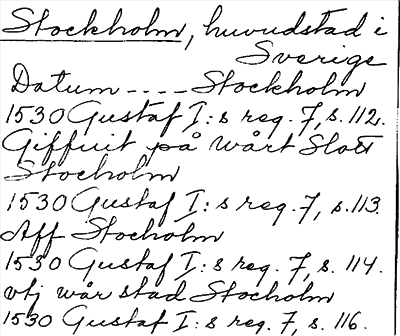 Stockholm, huvudstad i
Sverige
Datum ---- Stockholm
1530 Gustaf I:s reg. 7, s. 112.
Giffuit på wårt Slott
Stocholm
1530 Gustaf I:s reg. 7, s. 113.
Aff Stocholm
1530 Gustaf I:s reg. 7, s. 114.
vtj wår stad Stocholm
1530 Gustaf I:s reg. 7, s. 116.